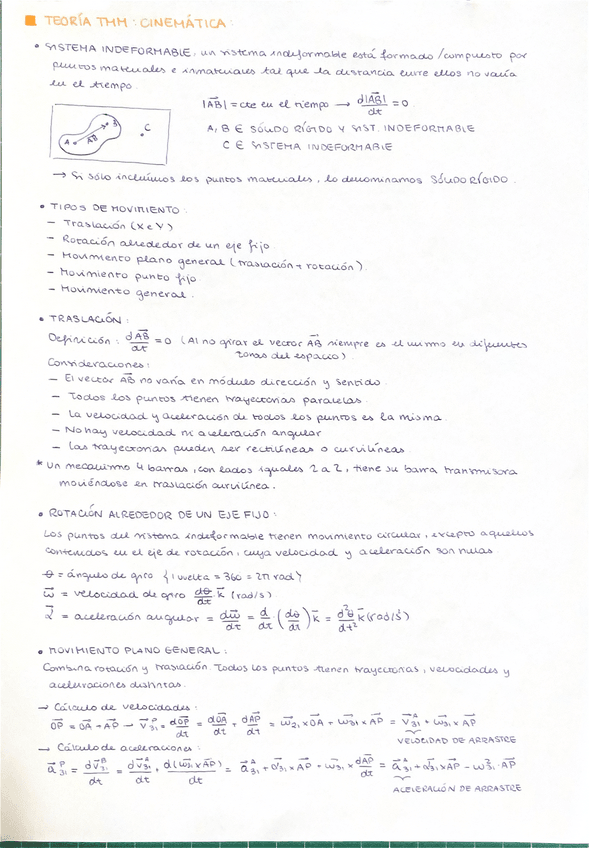 TEORÍA TMM: CINEMÁTICA:
• SISTEMA INDEFORMABLE: un sistema indeformable está formado/compuesto por
puntos materiales e inmateriales tal que la distancia entre ellos no varía
en el tiempo.
|AB| = cte en el tiempo → d|AB|/dt = 0
A, B ∈ SÓLIDO RÍGIDO Y SIST. INDEFORMABLE
C ∈ SISTEMA INDEFORMABLE
A AB B C
→ Si sólo incluimos los puntos materiales, lo denominamos SÓLIDO RÍGIDO.
• TIPOS DE MOVIMIENTO:
- Traslación (X e Y)
- Rotación alrededor de un eje fijo.
- Movimiento plano general (traslación + rotación).
- Movimiento punto fijo.
- Movimiento general.
• TRASLACIÓN:
Definición: dAB/dt = 0 (Al no girar el vector AB siempre es el mismo en diferentes
zonas del espacio).
Consideraciones:
- El vector AB no varía en módulo dirección y sentido.
- Todos los puntos tienen trayectorias paralelas.
- La velocidad y aceleración de todos los puntos es la misma.
- No hay velocidad ni aceleración angular
- Las trayectorias pueden ser rectilíneas o curvilíneas.
* Un mecanismo 4 barras, con lados iguales 2 a 2, tiene su barra transmisora
moviéndose en traslación curvilínea.
• ROTACIÓN ALREDEDOR DE UN EJE FIJO:
Los puntos del sistema indeformable tienen movimiento circular, excepto aquellos
contenidos en el eje de rotación, cuya velocidad y aceleración son nulas
θ = ángulo de giro {1 vuelta = 360 = 2π rad}
ω = velocidad de giro dθ/dt k (rad/s)
α = aceleración angular = dω/dt = d/dt · (dθ/dt) k = d²θ/dt² k (rad/s²)
• MOVIMIENTO PLANO GENERAL:
Combina rotación y traslación. Todos los puntos tienen trayectorias, velocidades y
aceleraciones distintas.
→ Cálculo de velocidades:
OP = OA + AP → V₃₁ᴾ = dOP/dt = dOA/dt + dAP/dt = ω₂₁ × OA + ω₃₁ × AP = V₃₁ᴬ + ω₃₁ × AP
VELOCIDAD DE ARRASTRE
→ Cálculo de aceleraciones:
a₃₁ᴾ = dV₃₁ᴮ/dt = dV₃₁ᴬ/dt + d(ω₃₁ × AP)/dt = a₃₁ᴬ + α₃₁ × AP + ω₃₁ × dAP/dt = a₃₁ᴬ + α₃₁ × AP - ω₃₁² · AP
ACELERACIÓN DE ARRASTRE